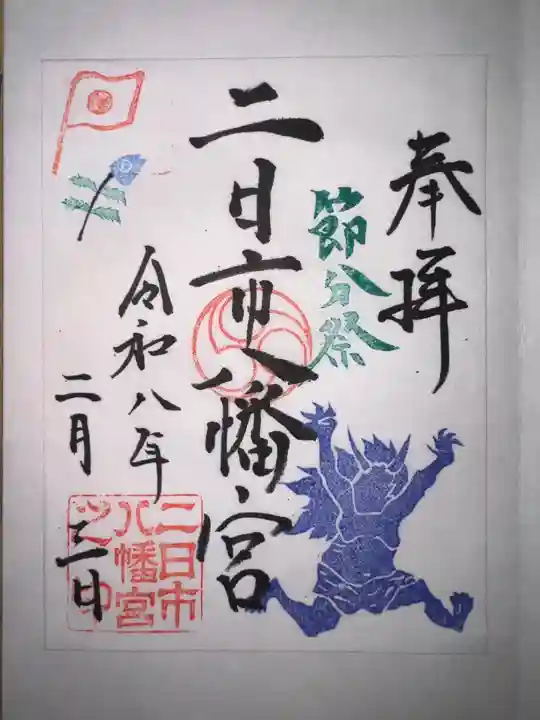 奉拝
節分祭
二日市八幡宮
令和八年
二月三日
二日市
八幡宮
之印